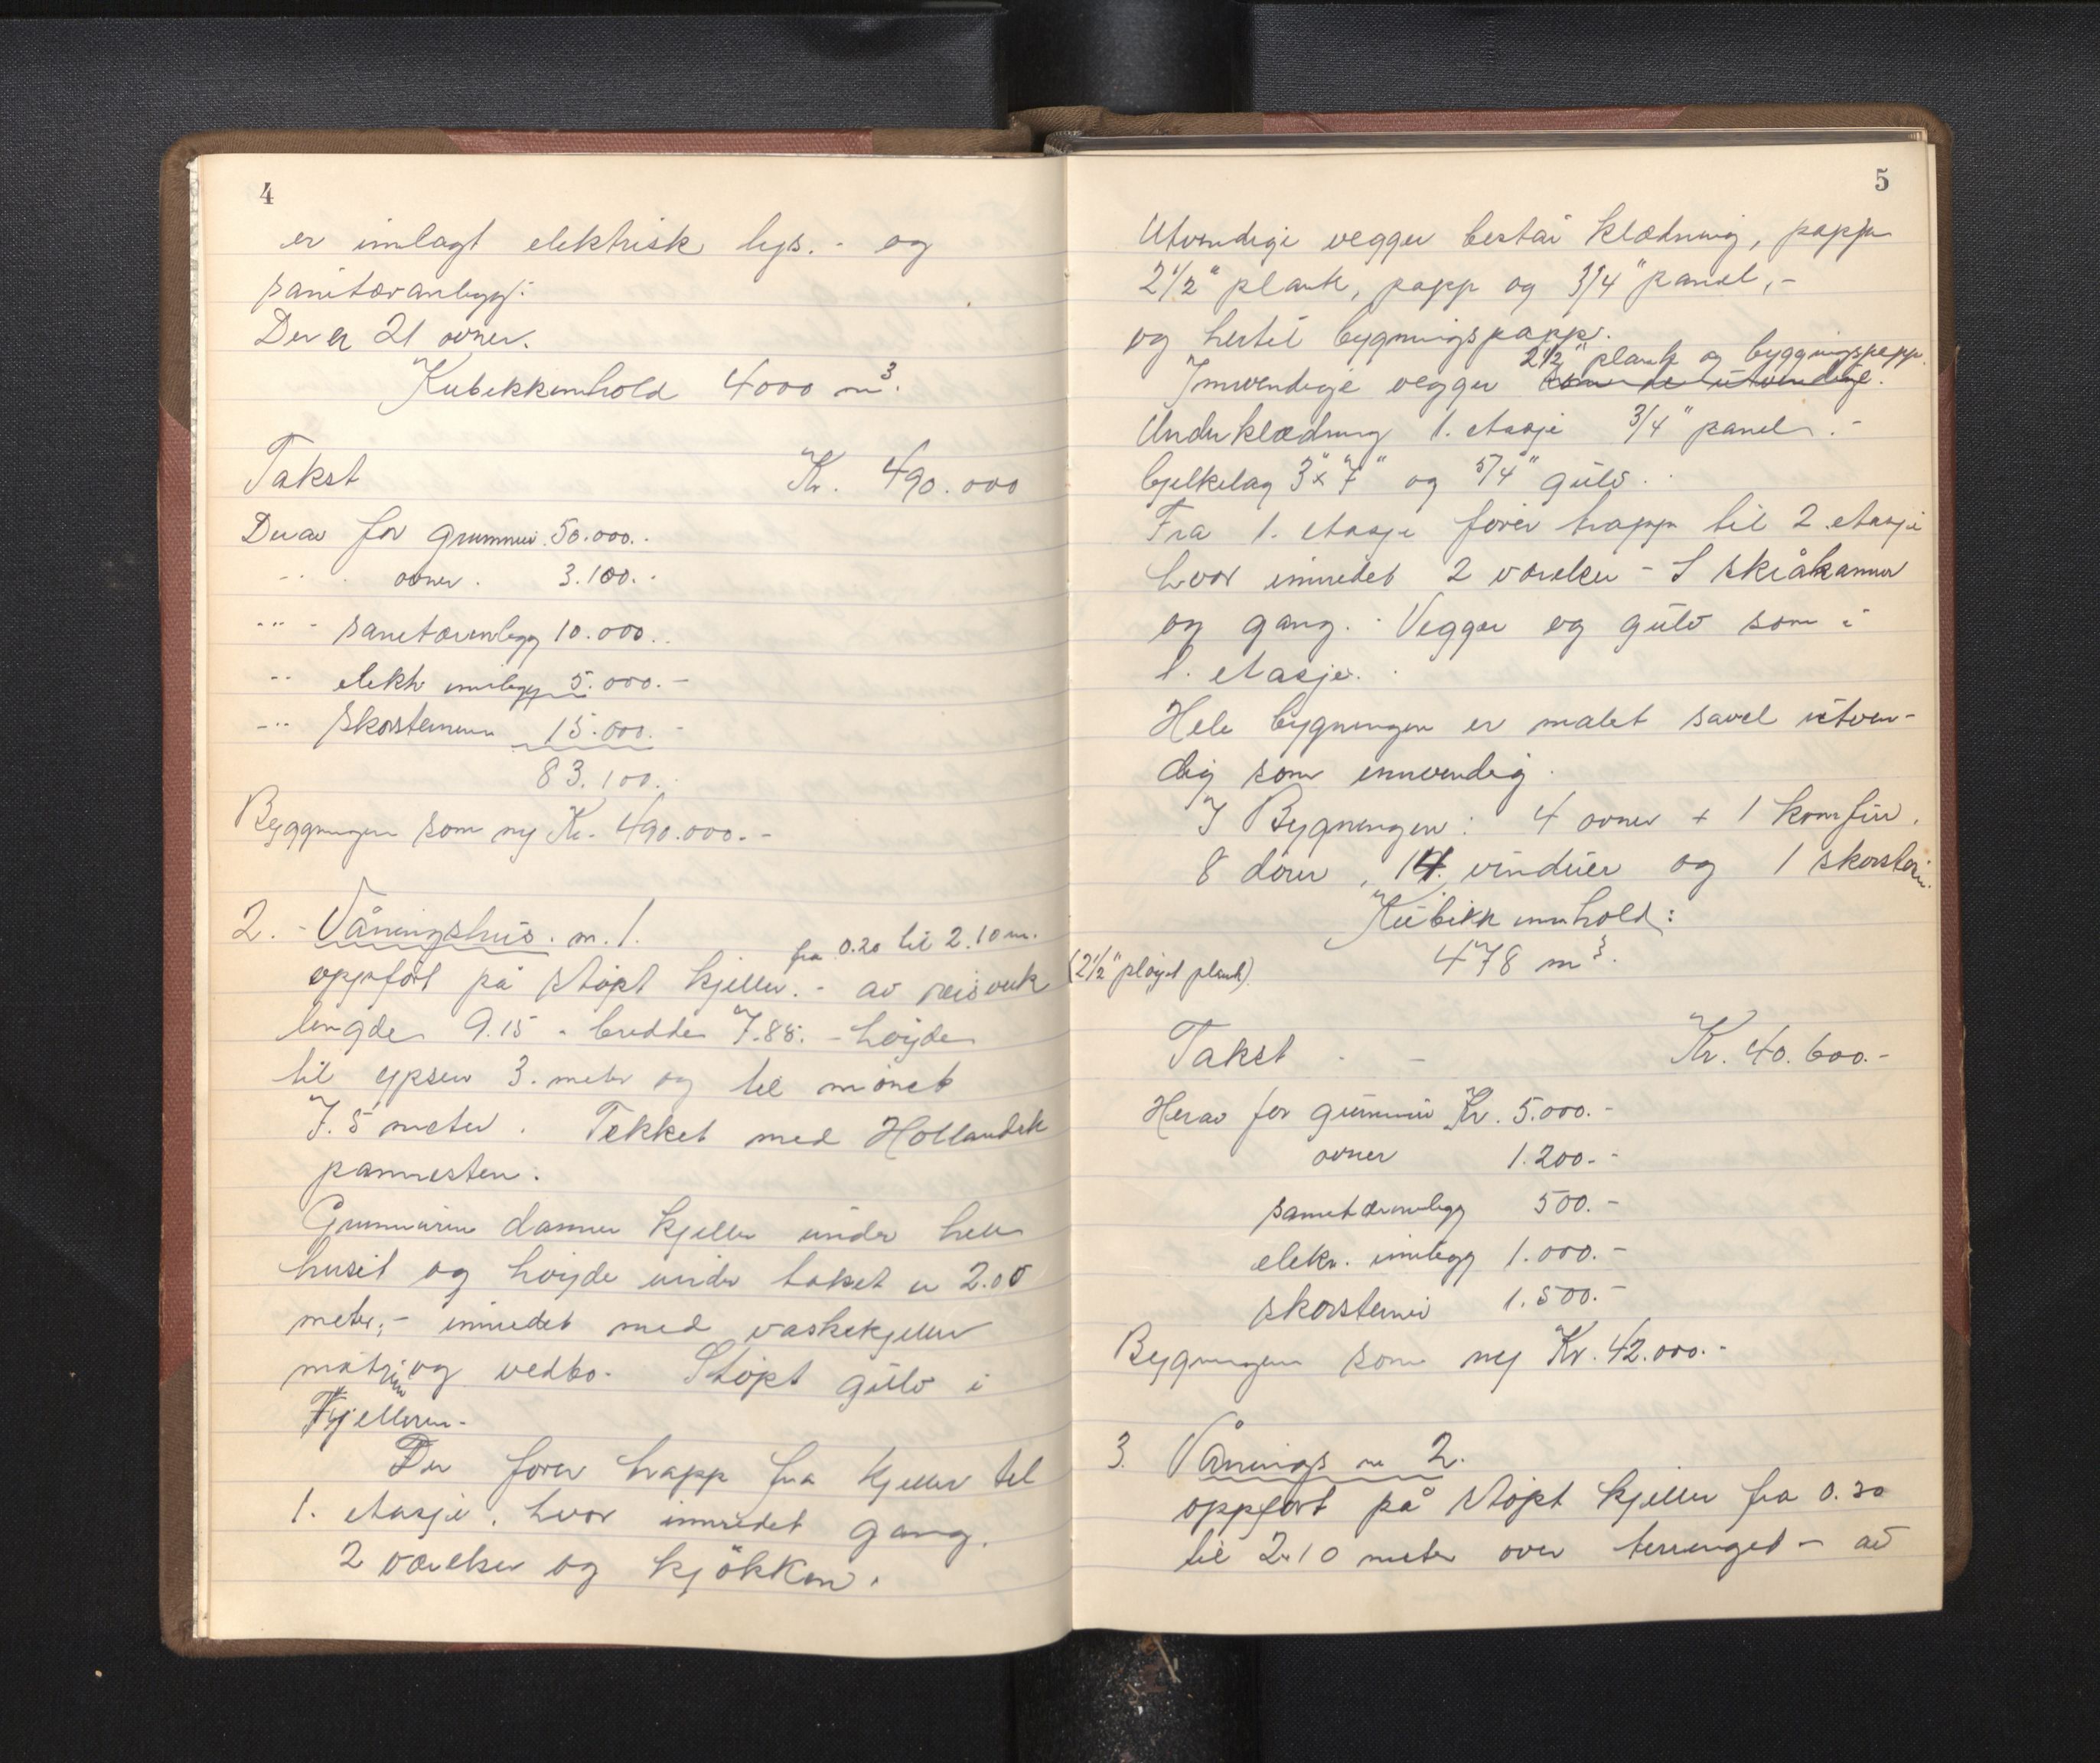 4
er innlagt elektrisk lys. - og
sanitæranlegg.
Der er 21 ovner.
Kubikkinnhold 4000 m³.
Takst Kr. 490.000
Derav for grunnmur 50.000.-
" ovner. 3.100.-
" sanitæranlegg 10.000.
" elektr innlegg 5.000.-
" skorsteiner 15.000.-
83.100.
Byggningen som ny Kr. 490.000.-
2. - Våningshus. m. 1.
fra 0.20 til 2.10 m.
oppført på støpt kjeller. - av reisverk (2½" pløyet plank)
lengde 9.15 - bredde 7.88. - høyde
til gesen 3. meter og til mønet
7.5 meter. Tekket med Hollandsk
pannesten.
Grunnmuren danner kjeller under hele
huset og høyde under taket er 2.05
meter, - innredet med vaskekjeller
matrum og vedbo. Støpt gulv i
Kjelleren.
Der fører trapp fra kjeller til
1. etasje, hvor innredet gang,
2 værelser og kjökken.
5
Utvendige vegger består klædning, papp
2½" plank, papp og 3/4" panel, -
og hertil bygningspapp.
2½" plank og byggningspapp.
Innvendige vegger som de utvendige.
Underklædning 1. etasje 3/4" panel. -
bjelkelag 3" x 7" og 5/4" gulv.
Fra 1. etasje fører trapp til 2. etasje
hvor innredet 2 værelser - 2 skråkammer
og gang. Vegger og gulv som i
1. etasje.
Hele bygningen er malet såvel utven-
dig som innvendig.
I Bygningen: 4 ovner + 1 komfur.
8 dører, 14 vinduer og 1 skorstein.
Kubikk innhold:
478 m³.
Takst - - Kr. 40.600.-
Herav for grunnmur Kr. 5.000.-
ovner 1.200.-
sanitæranlegg 500.-
elekr. innlegg 1.000.-
skorsteiner 1.500.-
Bygningen som ny Kr. 42.000.-
3. Vånings m 2.
oppført på støpt kjeller fra 0.30
til 2.10 meter over terrenget - av